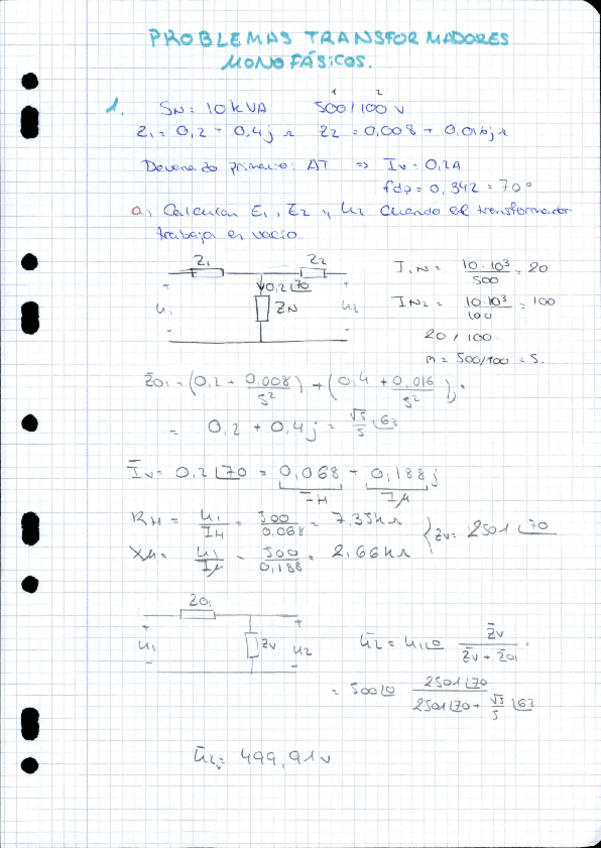 PROBLEMAS TRANSFORMADORES
MONOFÁSICOS.
1. SN = 10 kVA 500/100 V
1 2
Z1 = 0,2 + 0,4j Ω Z2 = 0,008 + 0,016j Ω
Devanado primario: AT ⇒ Iv = 0,2A
fdp = 0,342 = 70°
a) Calcular E1, E2 y U2 cuando el transformador
trabaja en vacío.
Z1 Z2
+ 0,2∠70 +
U1 ZN U2
- -
I1N = 10·10³/500 = 20
IN2 = 10·10³/100 = 100
20 / 100.
m = 500/100 = 5.
Z01 = (0,2 + 0,008/5²) + (0,4 + 0,016/5²)j.
= 0,2 + 0,4j = √5/5 ∠63
Īv = 0,2∠70 = 0,068 + 0,188j
IH Iμ
RH = U1/IH = 500/0,068 = 7,35kΩ
Xμ = U1/Iμ = 500/0,188 = 2,66kΩ
Zv = 2501∠70
Z01
+ +
U1 Zv U2
- -
Ū2 = U1∠0 Z̄v/(Z̄v + Z̄01).
= 500∠0 2501∠70/(2501∠70 + √5/5 ∠63)
Ū2 = 499,91 V